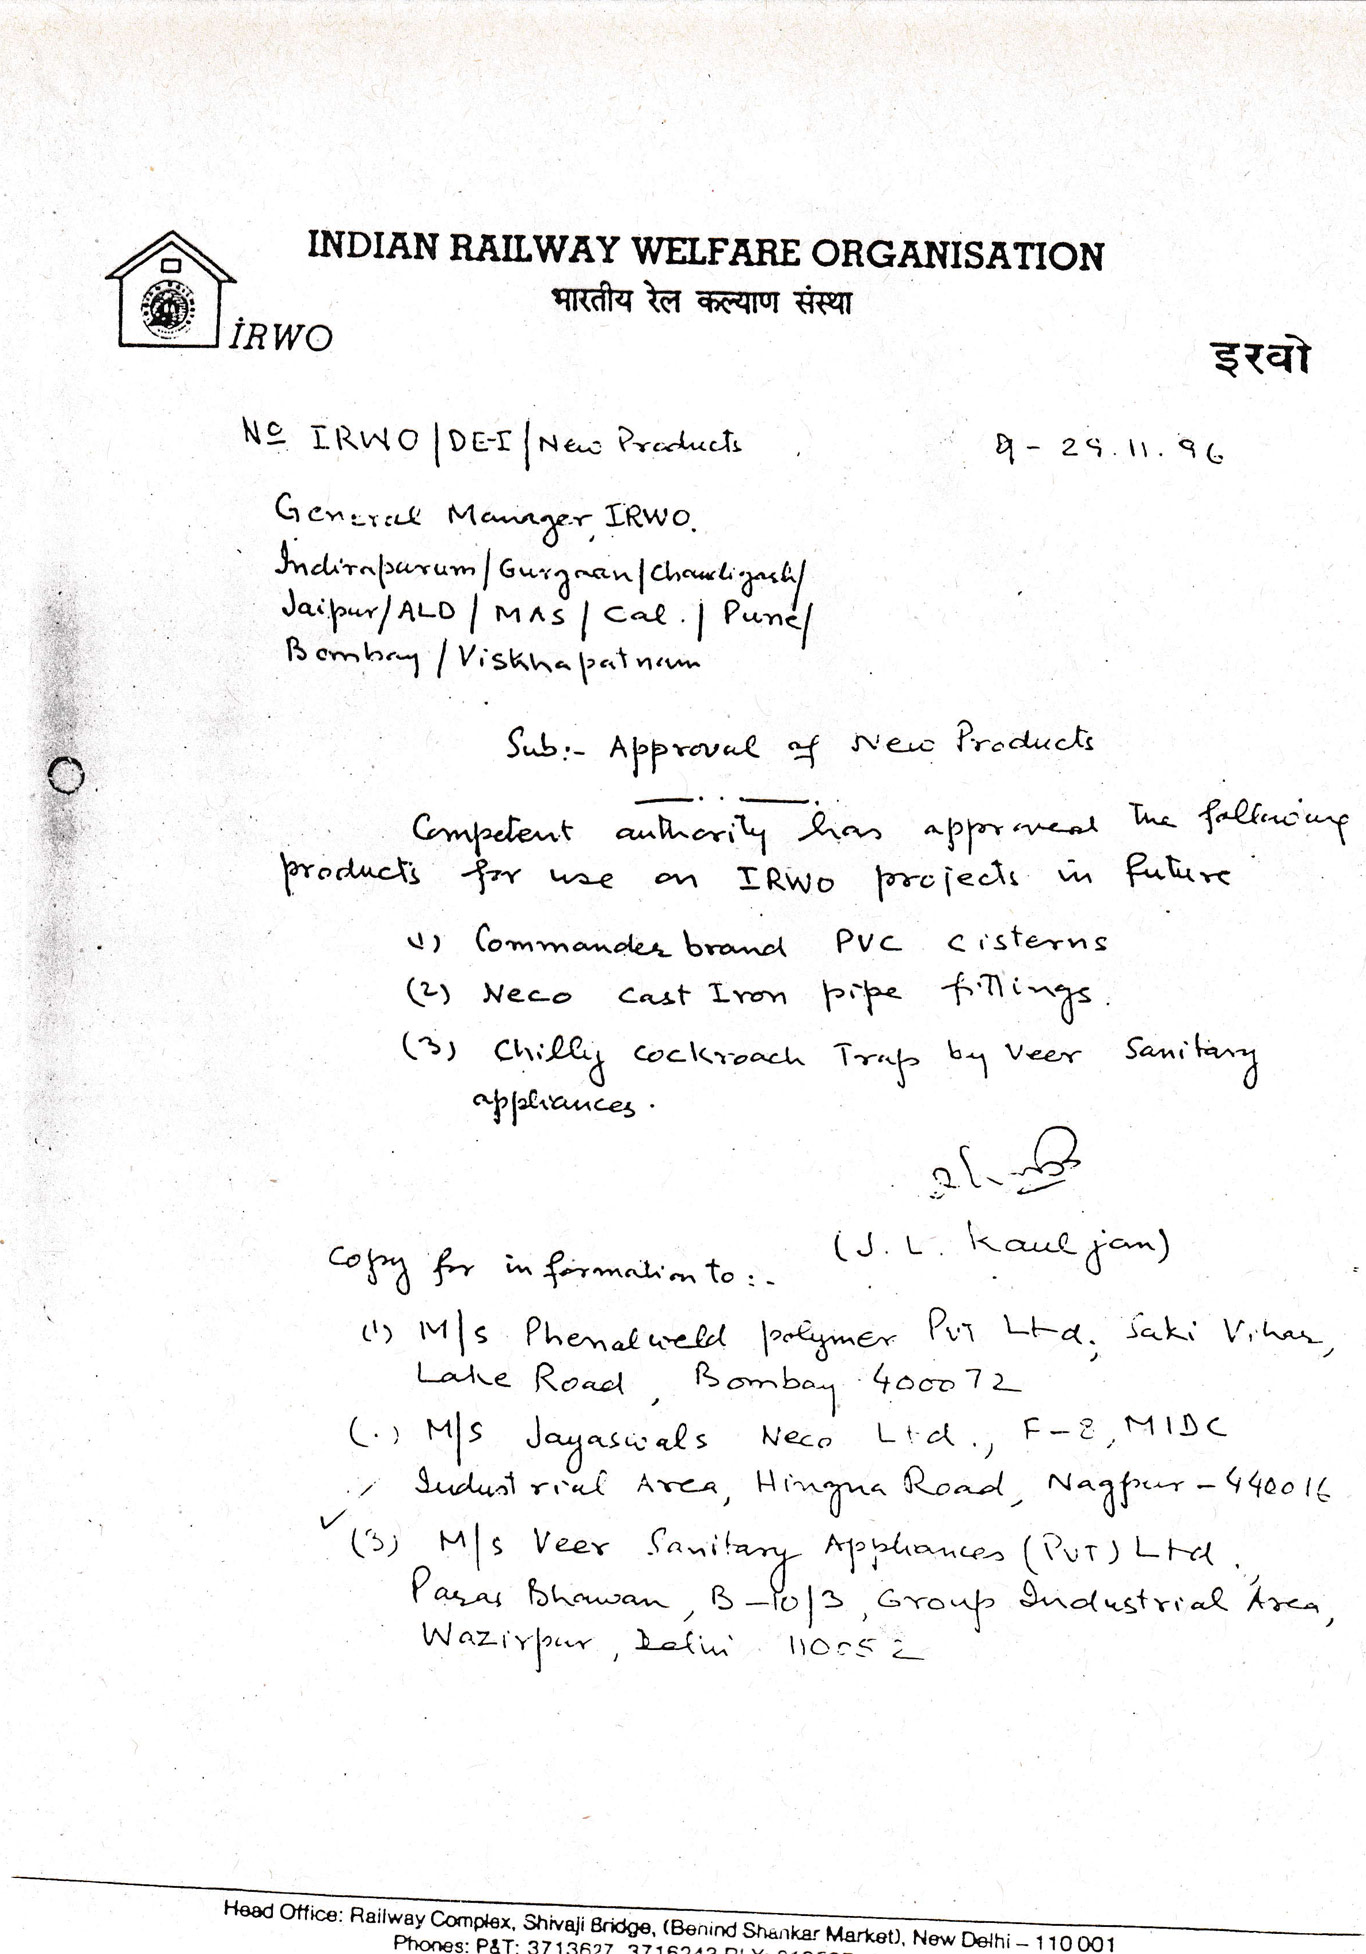 INDIAN RAILWAY WELFARE ORGANISATION
भारतीय रेल कल्याण संस्था
IRWO
इरवो
No IRWO/DE-I/New Products
29.11.96
General Manager, IRWO.
Indirapurum/Gurgaon/Chandigarh/
Jaipur/ALD/MAS/Cal./Pune/
Bombay/Viskhapatnam
Sub:- Approval of New Products
Competent authority has approved the following
products for use on IRWO projects in future
(1) Commander brand PVC cisterns
(2) Neco Cast Iron pipe fittings.
(3) Chilly Cockroach Trap by Veer Sanitary
appliances.
(J. L. Kauljan)
Copy for information to:-
(1) M/s Phenolweld polymer Pvt Ltd, Saki Vihar,
Lake Road, Bombay 400072
(.) M/S Jayaswals Neco Ltd., F-8, MIDC
Industrial Area, Hingna Road, Nagpur - 440016
(3) M/s Veer Sanitary Appliances (PVT) Ltd.,
Paras Bhawan, B-10/3, Group Industrial Area,
Wazirpur, Delhi 110052
Head Office: Railway Complex, Shivaji Bridge, (Behind Shankar Market), New Delhi – 110 001
Phones: P&T: 3713627, 3716243